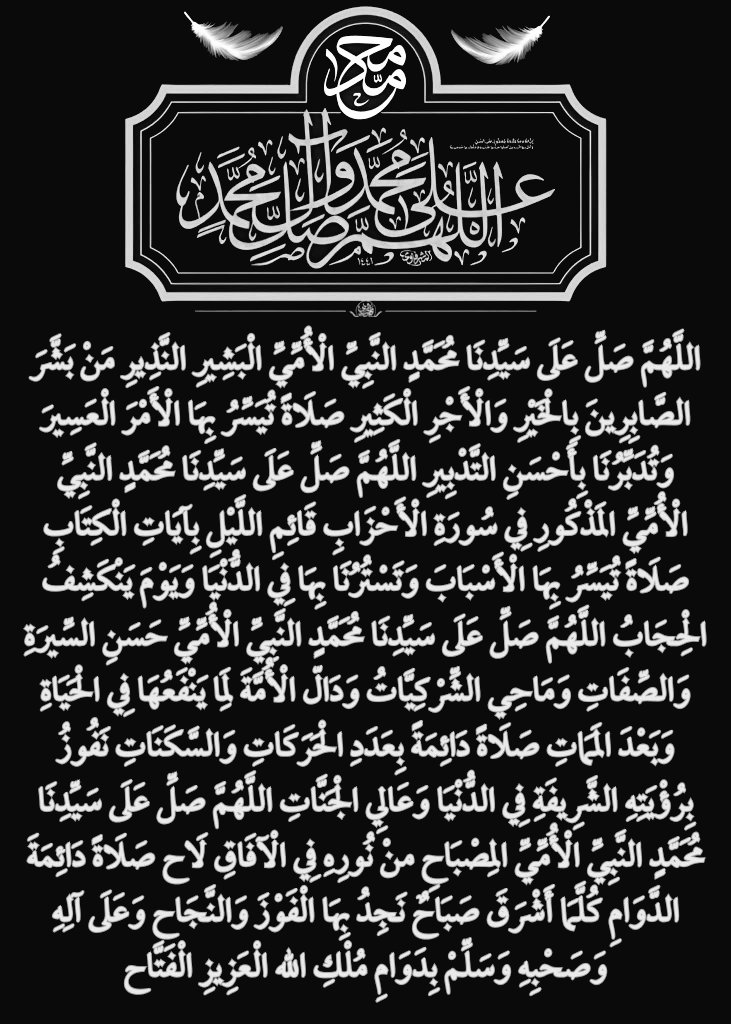 محمد
اللهم صل على محمد وآل محمد
١٤٤١
اللَّهُمَّ صَلِّ عَلَى سَيِّدِنَا مُحَمَّدٍ النَّبِيِّ الْأُمِّيِّ الْبَشِيرِ النَّذِيرِ مَنْ بَشَّرَ
الصَّابِرِينَ بِالْخَيْرِ وَالْأَجْرِ الْكَثِيرِ صَلَاةً تُيَسِّرُ بِهَا الْأَمْرَ الْعَسِيرَ
وَتُدَبِّرُنَا بِأَحْسَنِ التَّدْبِيرِ اللَّهُمَّ صَلِّ عَلَى سَيِّدِنَا مُحَمَّدٍ النَّبِيِّ
الْأُمِّيِّ الْمَذْكُورِ فِي سُورَةِ الْأَحْزَابِ قَائِمِ اللَّيْلِ بِآيَاتِ الْكِتَابِ
صَلَاةً تُيَسِّرُ بِهَا الْأَسْبَابَ وَتَسْتُرُنَا بِهَا فِي الدُّنْيَا وَيَوْمَ يَنْكَشِفُ
الْحِجَابُ اللَّهُمَّ صَلِّ عَلَى سَيِّدِنَا مُحَمَّدٍ النَّبِيِّ الْأُمِّيِّ حَسَنِ السِّيرَةِ
وَالصِّفَاتِ وَمَاحِي الشِّرْكِيَّاتُ وَدَالّ الْأُمَّةَ لِمَا يَنْفَعُهَا فِي الْحَيَاةِ
وَبَعْدَ الْمَمَاتِ صَلَاةً دَائِمَةً بِعَدَدِ الْحَرَكَاتِ وَالسَّكَنَاتِ نَفُوزُ
بِرُؤْيَتِهِ الشَّرِيفَةِ فِي الدُّنْيَا وَعَالِي الْجَنَّاتِ اللَّهُمَّ صَلِّ عَلَى سَيِّدِنَا
مُحَمَّدٍ النَّبِيِّ الْأُمِّيِّ الْمِصْبَاحِ مِنْ نُورِهِ فِي الْآفَاقِ لَاح صَلَاةً دَائِمَةَ
الدَّوَامِ كُلَّمَا أَشْرَقَ صَبَاحٌ نَجِدُ بِهَا الْفَوْزَ وَالنَّجَاحِ وَعَلَى آلِهِ
وَصَحْبِهِ وَسَلِّمْ بِدَوَامِ مُلْكِ الله الْعَزِيزِ الْفَتَّاح